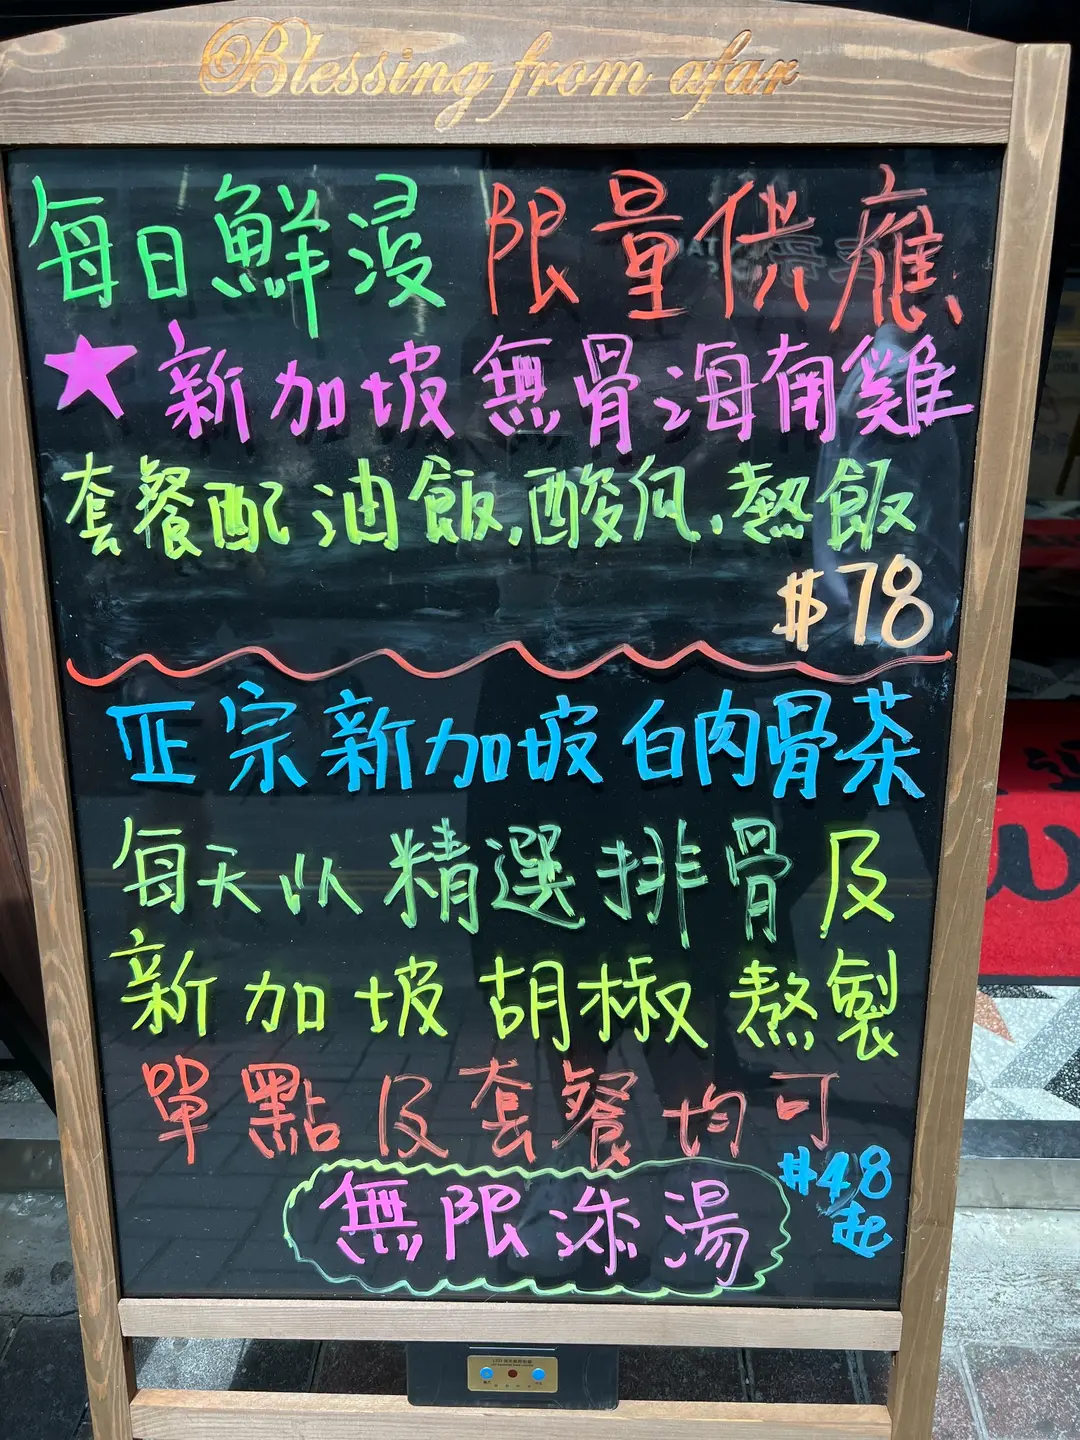 Blessing from afar
每日鮮浸 限量供應
★新加坡無骨海南雞
套餐配油飯,酸瓜,熱飯
$78
正宗新加坡白肉骨茶
每天以精選排骨及
新加坡胡椒熬製
單點及套餐均可
$48
起
無限添湯